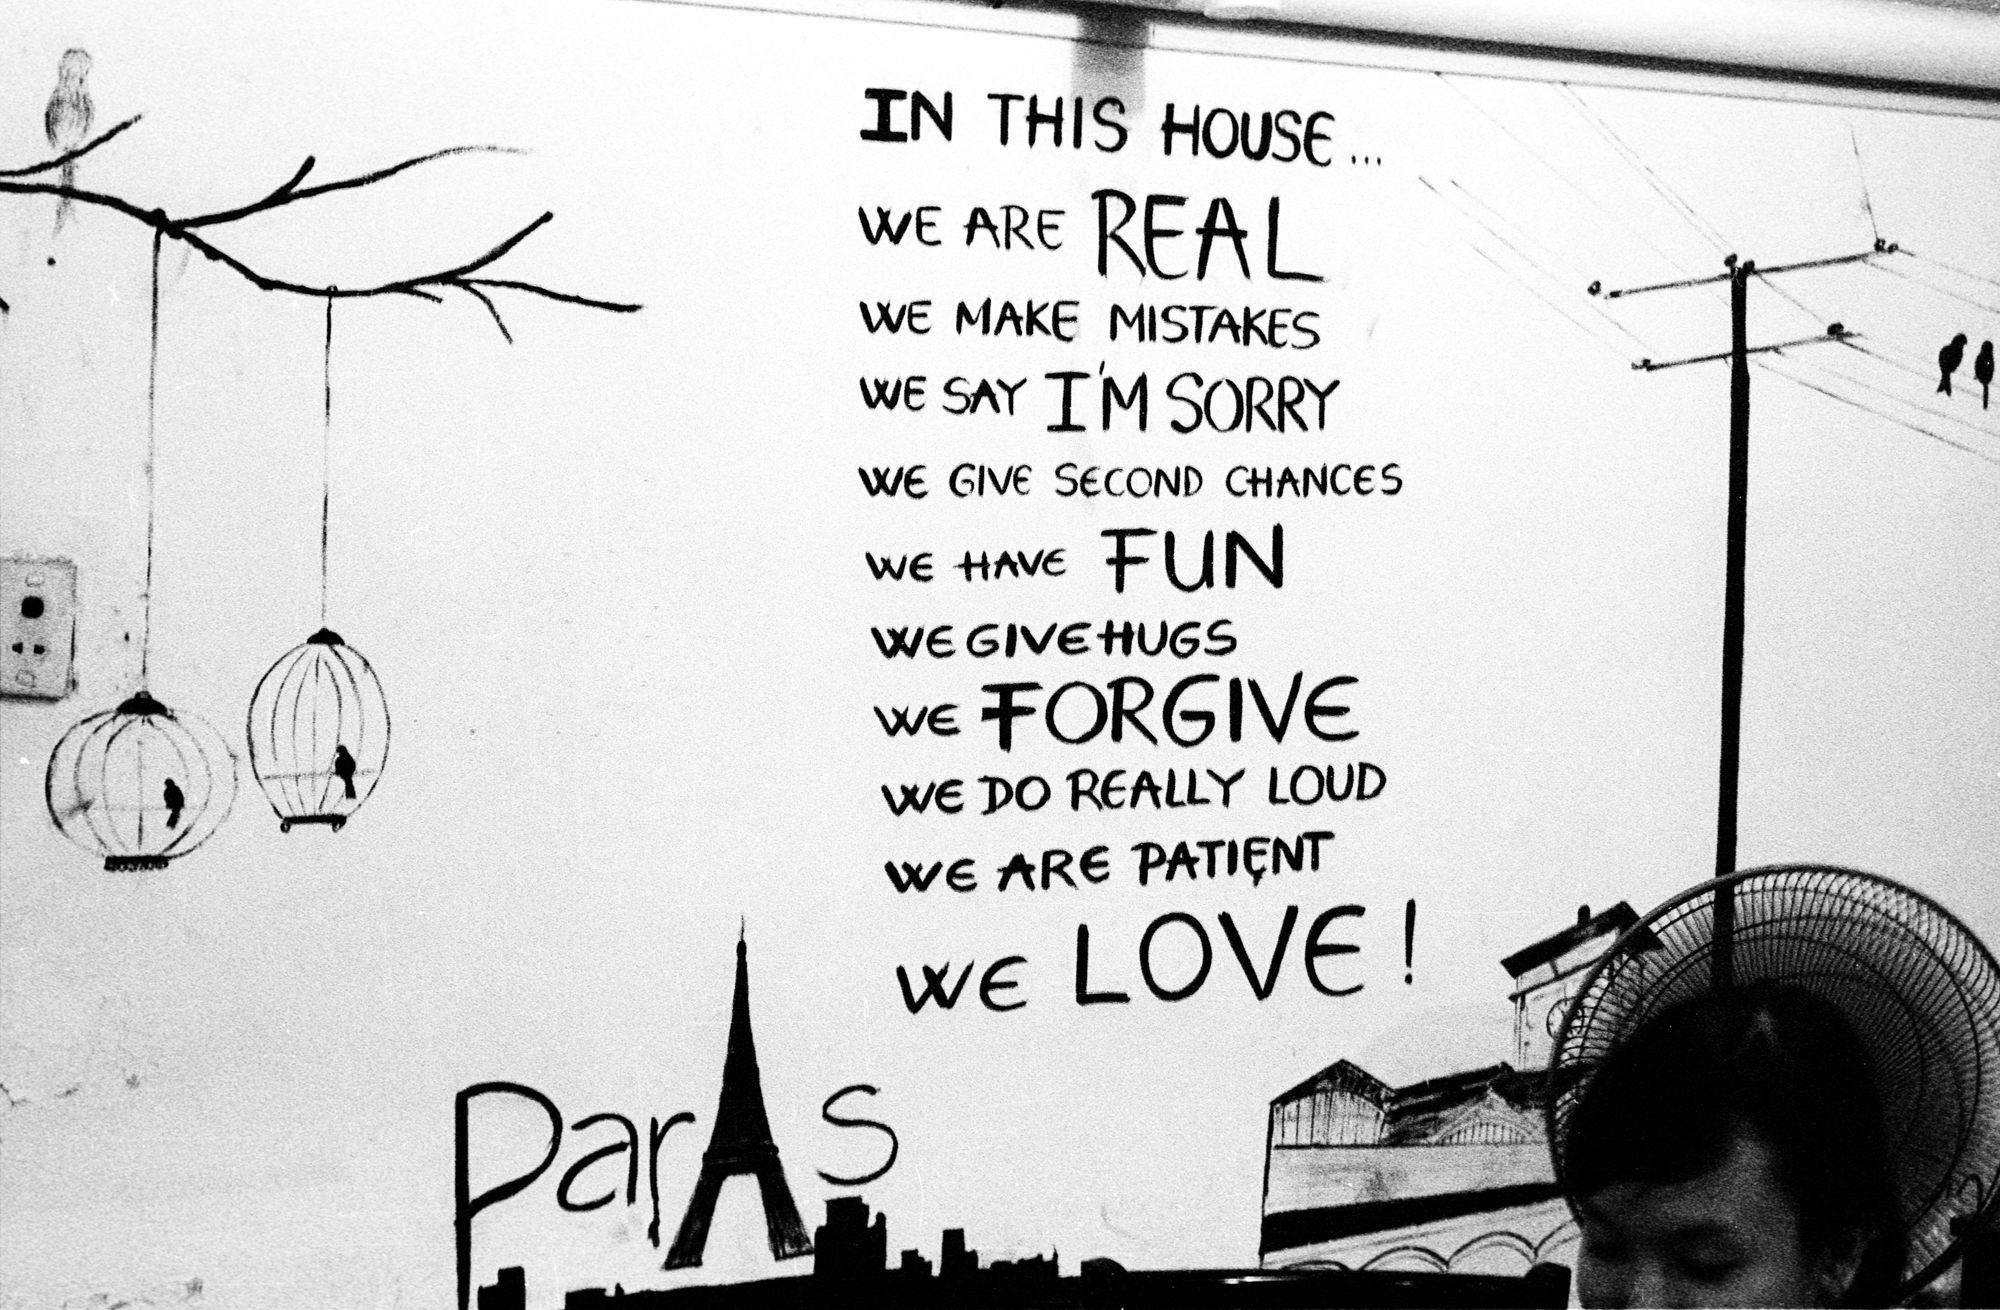 IN THIS HOUSE...
WE ARE REAL
WE MAKE MISTAKES
WE SAY I'M SORRY
WE GIVE SECOND CHANCES
WE HAVE FUN
WE GIVE HUGS
WE FORGIVE
WE DO REALLY LOUD
WE ARE PATIENT
WE LOVE!
Paris